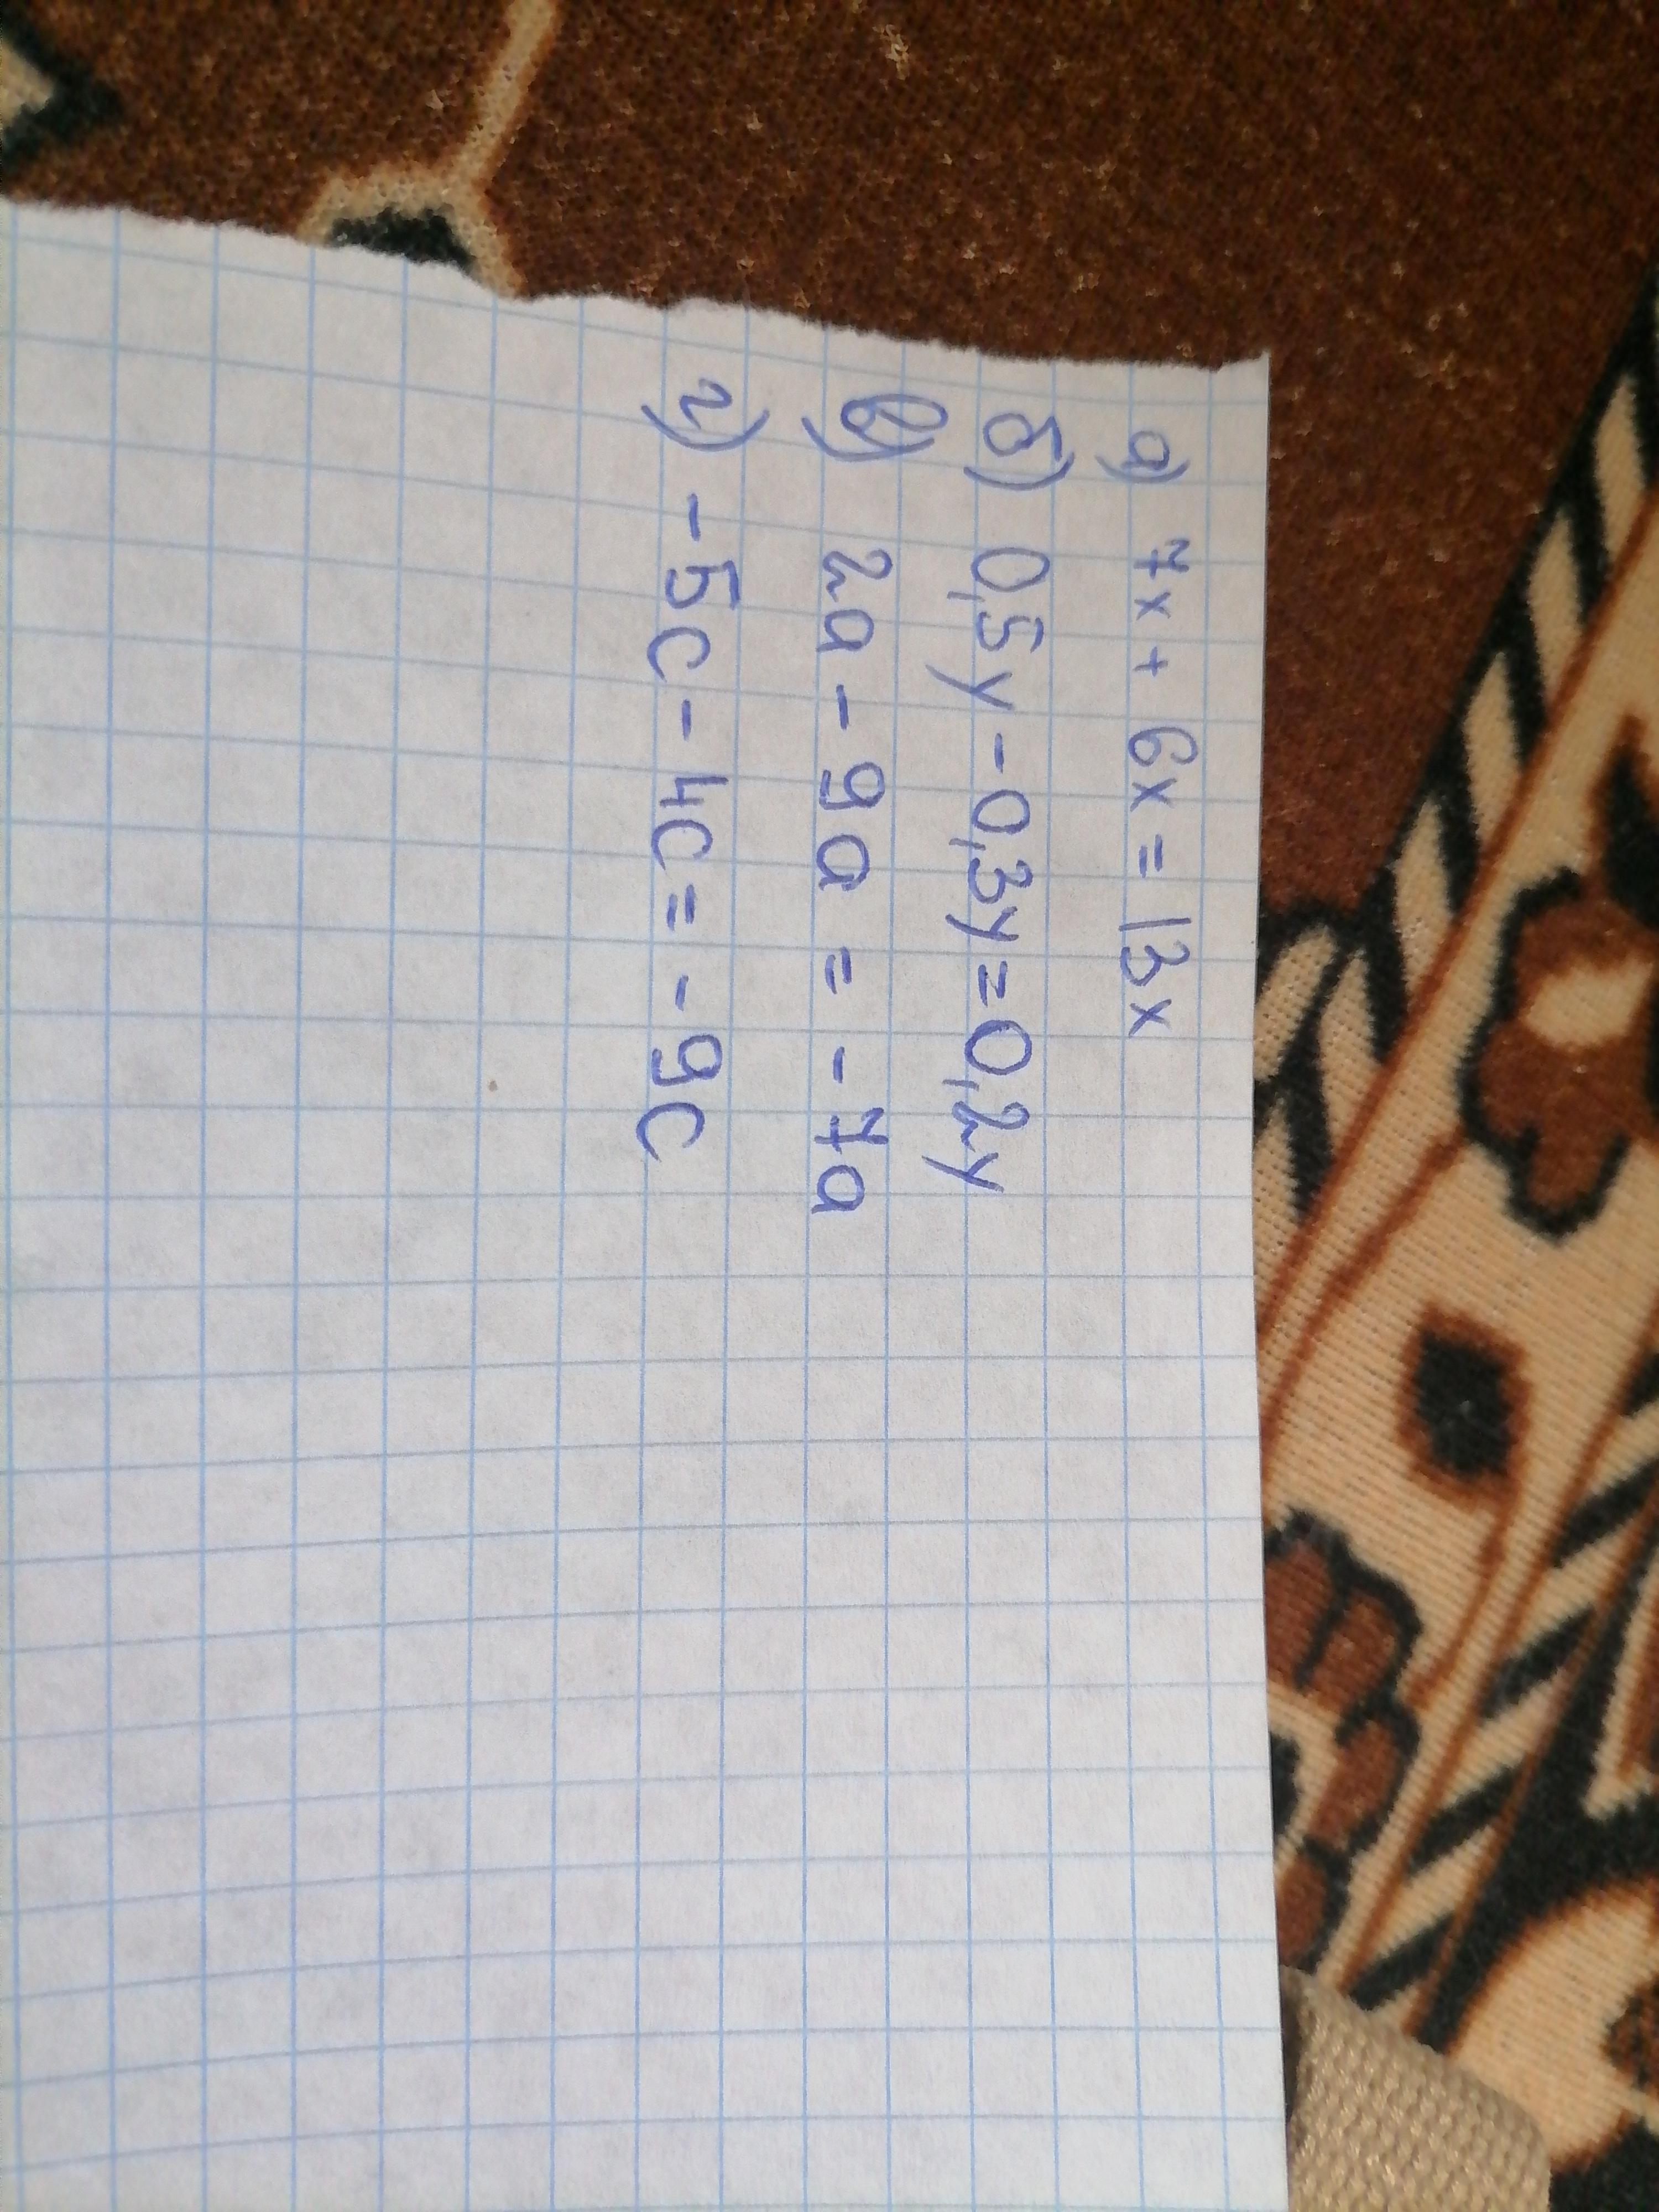 а) 7x + 6x = 13x
б) 0,5y - 0,3y = 0,2y
в) 2a - 9a = -7a
г) -5c - 4c = -9c